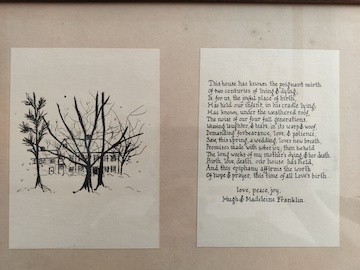 This house has known the poignant mirth
Of two centuries of living & dying;
Is for us the joyful place of birth,
Has held our infant in his cradle lying;
Has known, under the weathered roof,
The noise of our four full generations,
Weaving laughter, & tears, in its warp & woof,
Demanding forbearance, love, & patience.
Saw, this spring, a wedding, lovers new breath,
Promises made with sober joy; then beheld
The long weeks of my mother's dying, & her death
Birth, love, death, our house has held,
And this epiphany affirms the worth
Of hope & prayer, this time of all Love's birth
love, peace, joy,
Hugh & Madeleine Franklin